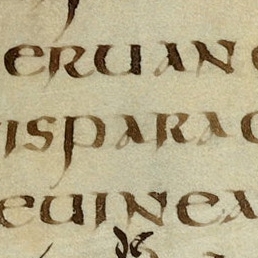 eruan
isparac
euinea